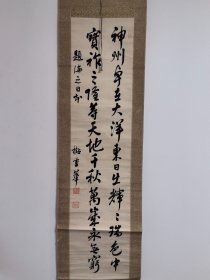 神州卓立大洋東日出輝〻瑞色中
寶祚之隆等天地千秋萬歲永無窮
題海上日出